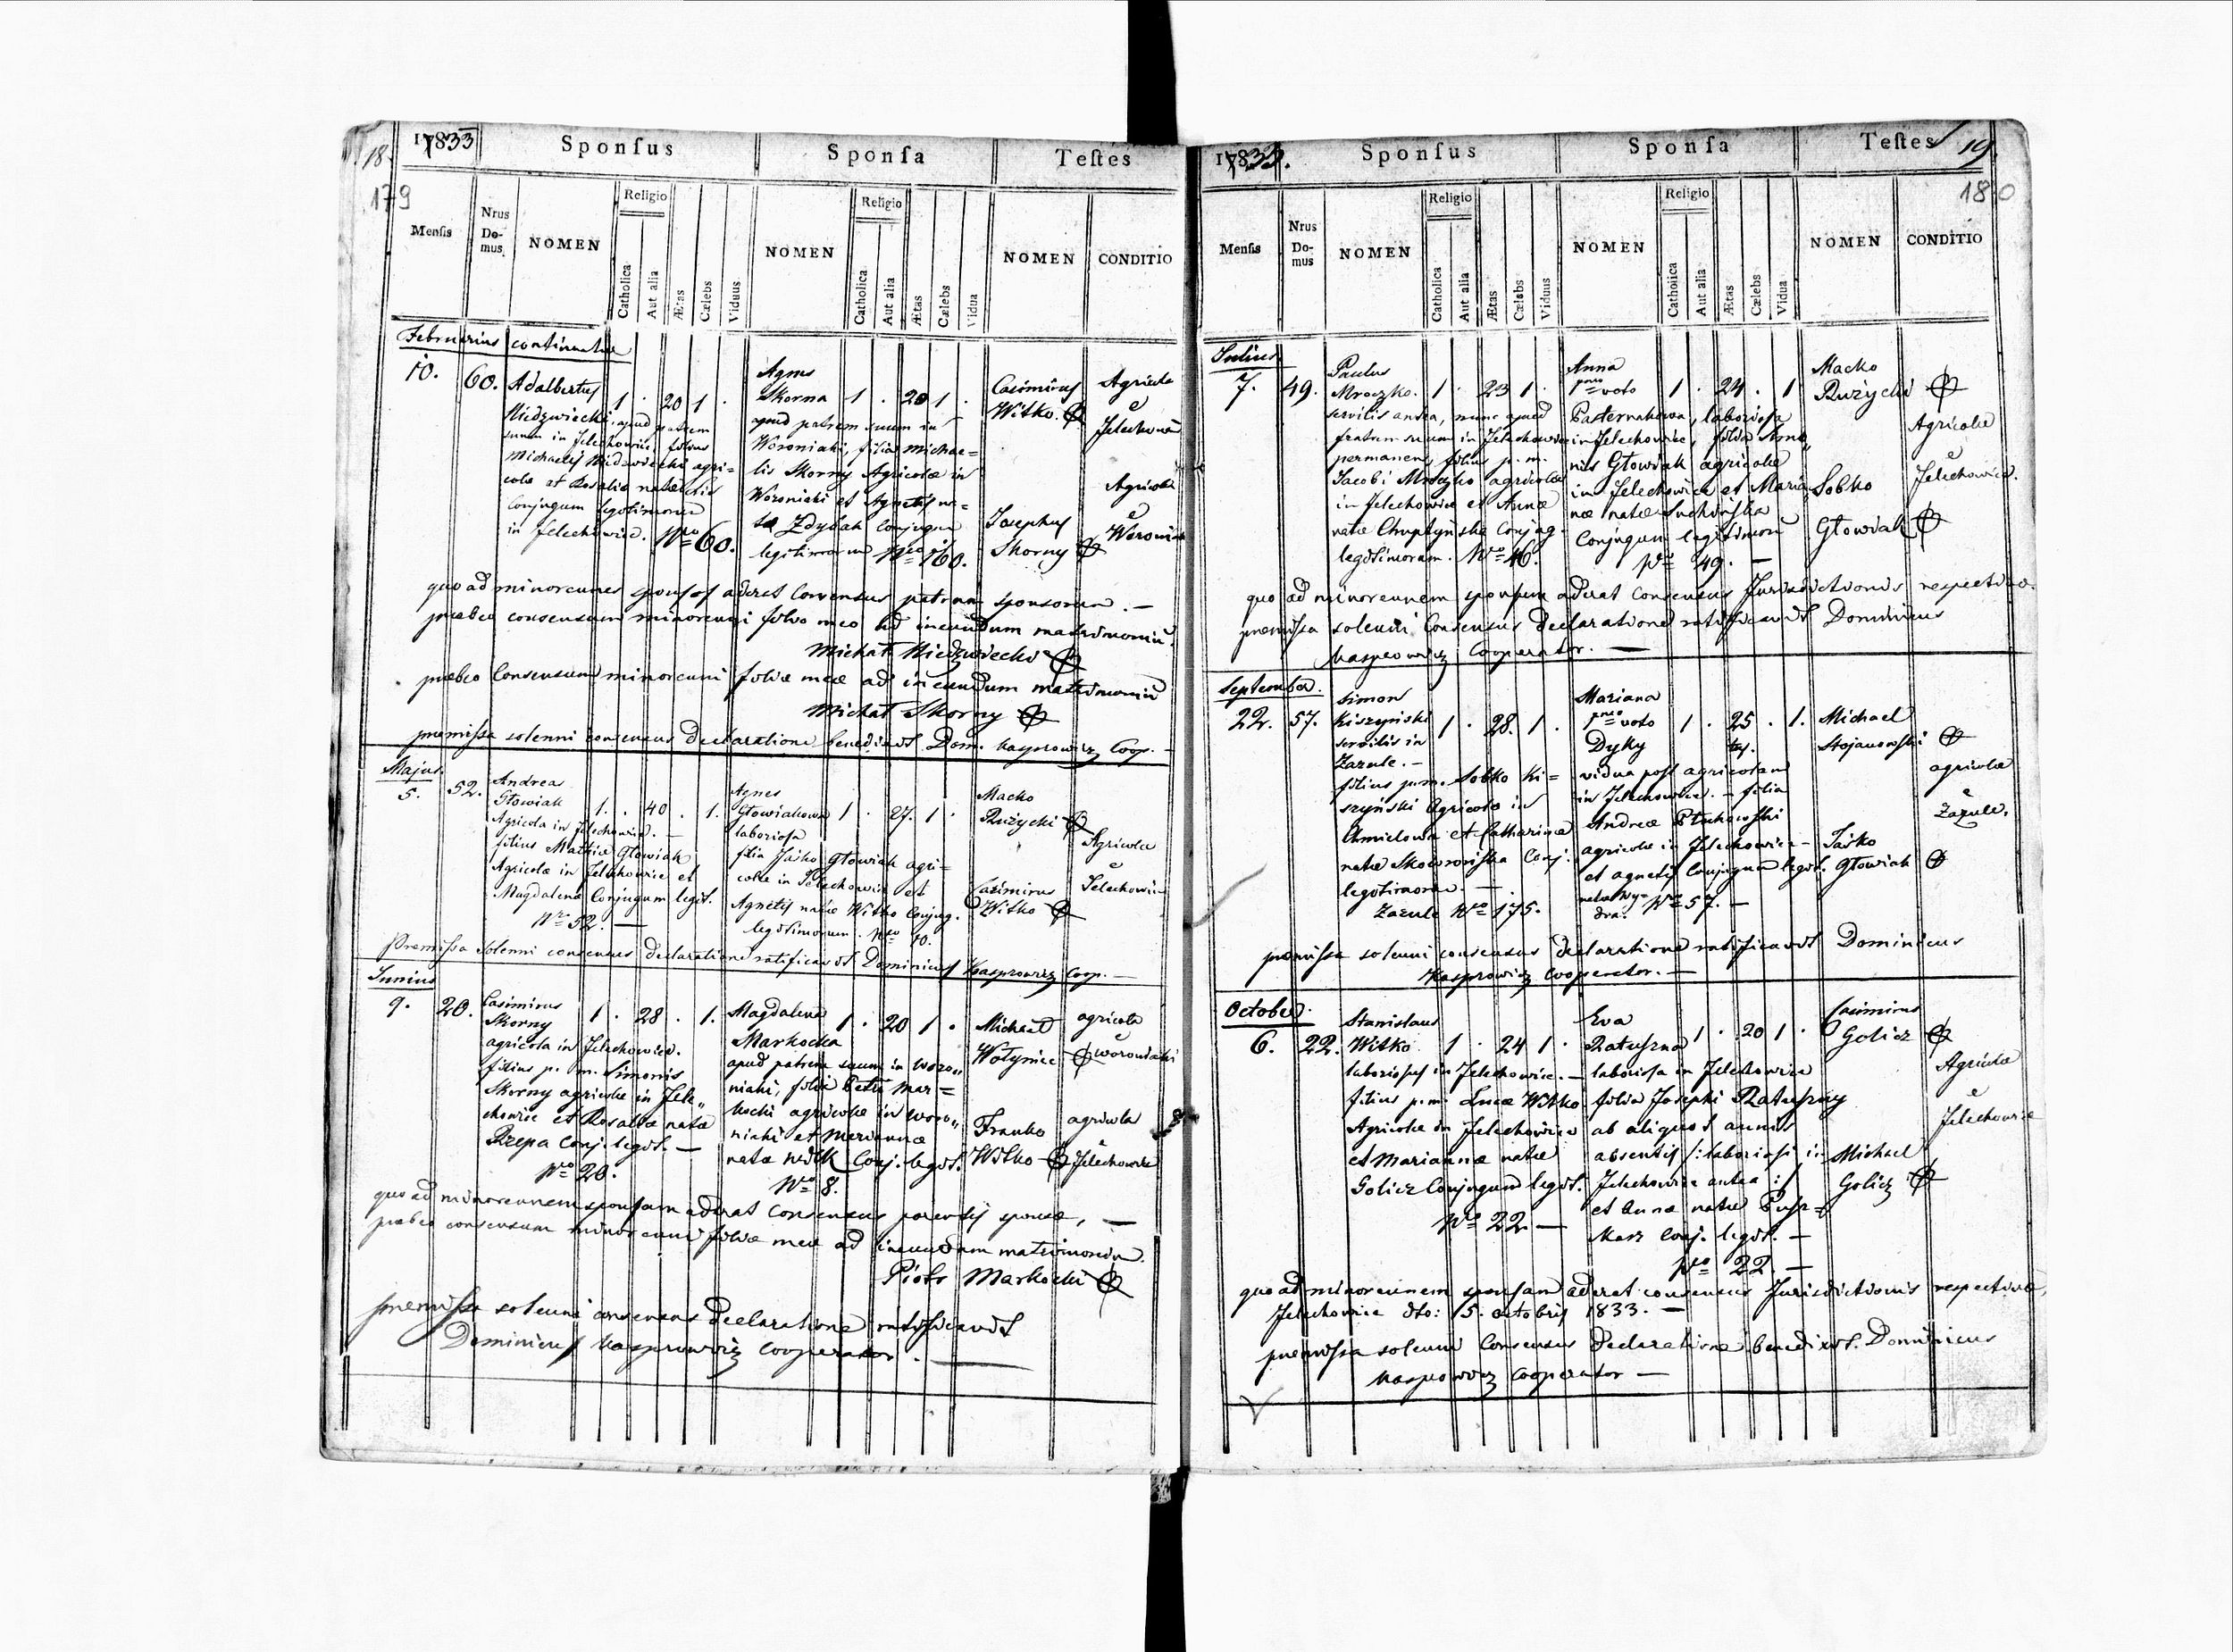 18. 1833 Sponsus Sponsa Testes
179
Mensis Nrus Domus NOMEN Religio Catholica Aut alia Ætas Cælebs Viduus NOMEN Religio Catholica Aut alia Ætas Cælebs Vidua NOMEN CONDITIO
Februarius continuatur
10. 60. Adalbertus 1 . 20 1 .
Niedzwiecki, apud patrem
suum in Jelechowice, filius
Michaelis Niedzwiecki agri=
colæ et Rosaliæ
Conjugum legitimorum
in Jelechowice. Nro 60.
Agnes
Skorna 1 . 20 1 .
apud patrem suum in
Woroniaki, filia Michae=
lis Skorny Agricolæ in
Woroniaki et Agnetis na=
tæ Zdybak Conjugum
legitimorum Nro 160.
Casimirus Agricola
Witko. e
Jelechowice
Agricola
Josephus e
Skorny Woroniaki
quo ad minorennes sponsos aderat Consensus patrum sponsorum. —
præbeo consensum minorenni filio meo ad ineundum matrimonium.
Michał Niedzwiecki
præbeo Consensum minorenni filiæ meæ ad ineundum matrimonium
Michał Skorny
præmissa solenni consensus declaratione benedixit Dom. Kasprowicz Coop. —
Majus.
5. 52. Andreas
Głowiak 1. . 40 . 1.
Agricola in Jelechowice. —
filius Mathiæ Głowiak
Agricolæ in Jelechowice et
Magdalenæ Conjugum legit.
Nro 52. —
Agnes
Głowiakowa 1 . 27. 1 .
laboriosa
filia Jaśko Głowiak agri=
colæ in Jelechowice et
Agnetis natæ Witko Conjug.
legitimorum. Nro 10.
Macko
Rużycki
Agricola
e
Casimirus Jelechowice
Witko
Premissa solenni consensus declaratione ratificavit Dominicus Kasprowicz Coop. —
Junius
9. 20. Casimirus
Skorny 1 . 28 . 1.
agricola in Jelechowice.
filius p. m. Simonis
Skorny agricolæ in Jele„
chowice et Rosaliæ natæ
Rzepa Conj. legit. —
Nro 20.
Magdalena
Markocka 1 . 20 1 .
apud patrem suum in Woro„
niaki, filia Petri Mar=
kocki agricolæ in Woro„
niaki et Mariannæ
natæ Wilk Conj. legit.
Nro 8.
Michael agricola
Wołyniec Woroniaki
Franko agricola
e
Witko Jelechowice
quo ad minorennem sponsam aderat Consensus parentis sponsæ, —
præbeo consensum minorenni filiæ meæ ad ineundum matrimonium.
Piotr Markocki
premissa solenni consensus declaratione ratificavit
Dominicus Kasprowicz Cooperator. —
1833. Sponsus Sponsa Testes 19.
180
Mensis Nrus Domus NOMEN Religio Catholica Aut alia Ætas Cælebs Viduus NOMEN Religio Catholica Aut alia Ætas Cælebs Vidua NOMEN CONDITIO
Julius.
7. 49. Paulus
Mroczko. 1 . 23 1 .
servilis antea, nunc apud
fratrem suum in Jelechowice
permanens, filius p. m.
Jacobi Mroczko agricolæ
in Jelechowice et Annæ
natæ Conjug.
legitimorum. Nro 46.
Anna
primo voto 1 . 24 . 1
Pasternakowa, laboriosa
in Jelechowice, filia
Głowiak agricolæ
in Jelechowice et Maria
næ natæ Suchińska
Conjugum legitimorum
Nro 49. —
Macko
Rużycki
Agricolæ
e
Sobko Jelechowice.
Głowiak
quo ad minorennem sponsum aderat Consensus Jurisdictionis respectivæ.
premissa solenni Consensus declaratione ratificavit Dominicus
Kasprowicz Cooperator. —
September.
22. 57. Simon
Kiszyński 1 . 28. 1 .
servilis in
Zazule. —
filius p. m. Sobko Ki=
szyński Agricolæ in
Chmielowa et Catharinæ
natæ Skowrońska Conj.
legitimorum. —
Zazule Nro 175.
Mariana
primo voto 1 . 25 . 1.
Dyky
vidua post agricolam
in Jelechowice. — filia
Andreæ Ptuchowski
agricolæ in Jelechowice —
et agnetis Conjugum legit.
natæ Wy=
dra. Nro 57. —
Michael
Stojanowski
agricolæ
e
Zazule.
Jaśko
Głowiak
premissa solenni consensus declaratione ratificavit Dominicus
Kasprowicz Cooperator. —
October.
6. 22. Stanislaus
Witko 1 . 24 1 .
laboriosus in Jelechowice. —
filius p. m. Lucæ Witko
Agricolæ in Jelechowice
et Mariannæ natæ
Golicz Conjugum legit.
Nro 22 —
Eva
Ratuszna 1 . 20 1 .
laboriosa in Jelechowice
filia Josephi Ratuszny
ab aliquot annis
absentis /: laboriosi in
Jelechowice antea :/
et Annæ natæ
Conj. legit. —
Nro 22. —
Casimirus
Golicz
Agricolæ
e
Jelechowice
Michael
Golicz
quo ad minorennem sponsam aderat consensus Jurisdictionis respectivæ,
Jelechowice dto: 5. octobris 1833. —
premissa solenni Consensus declaratione benedixit. Dominicus
Kasprowicz Cooperator —